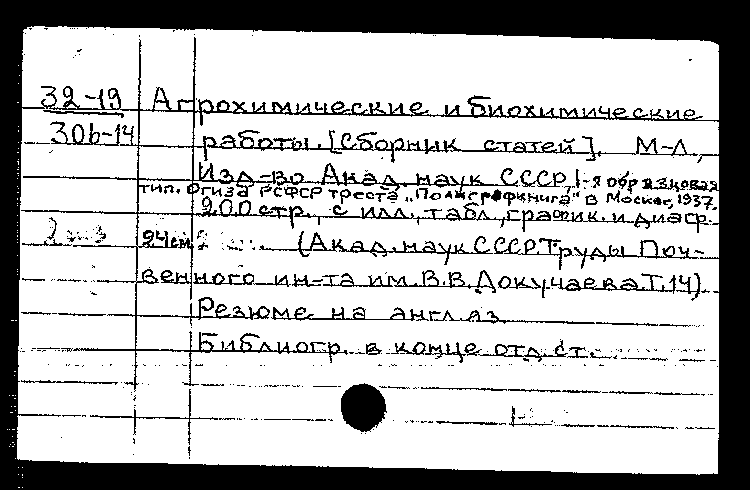 32-19 Агрохимические и биохимические
30b-14 работы. [Сборник статей]. М-Л.,
Изд-во Акад. наук СССР, 1-я образцовая
тип. Огиза РСФСР треста „Полиграфкнига" в Москве, 1937.
200 стр., с илл., табл., график. и диагр.
2 экз 24см (Акад. наук СССР. Труды Поч-
венного ин-та им. В.В. Докучаева. Т. 14)
Резюме на англ. яз.
Библиогр. в конце отд. ст.